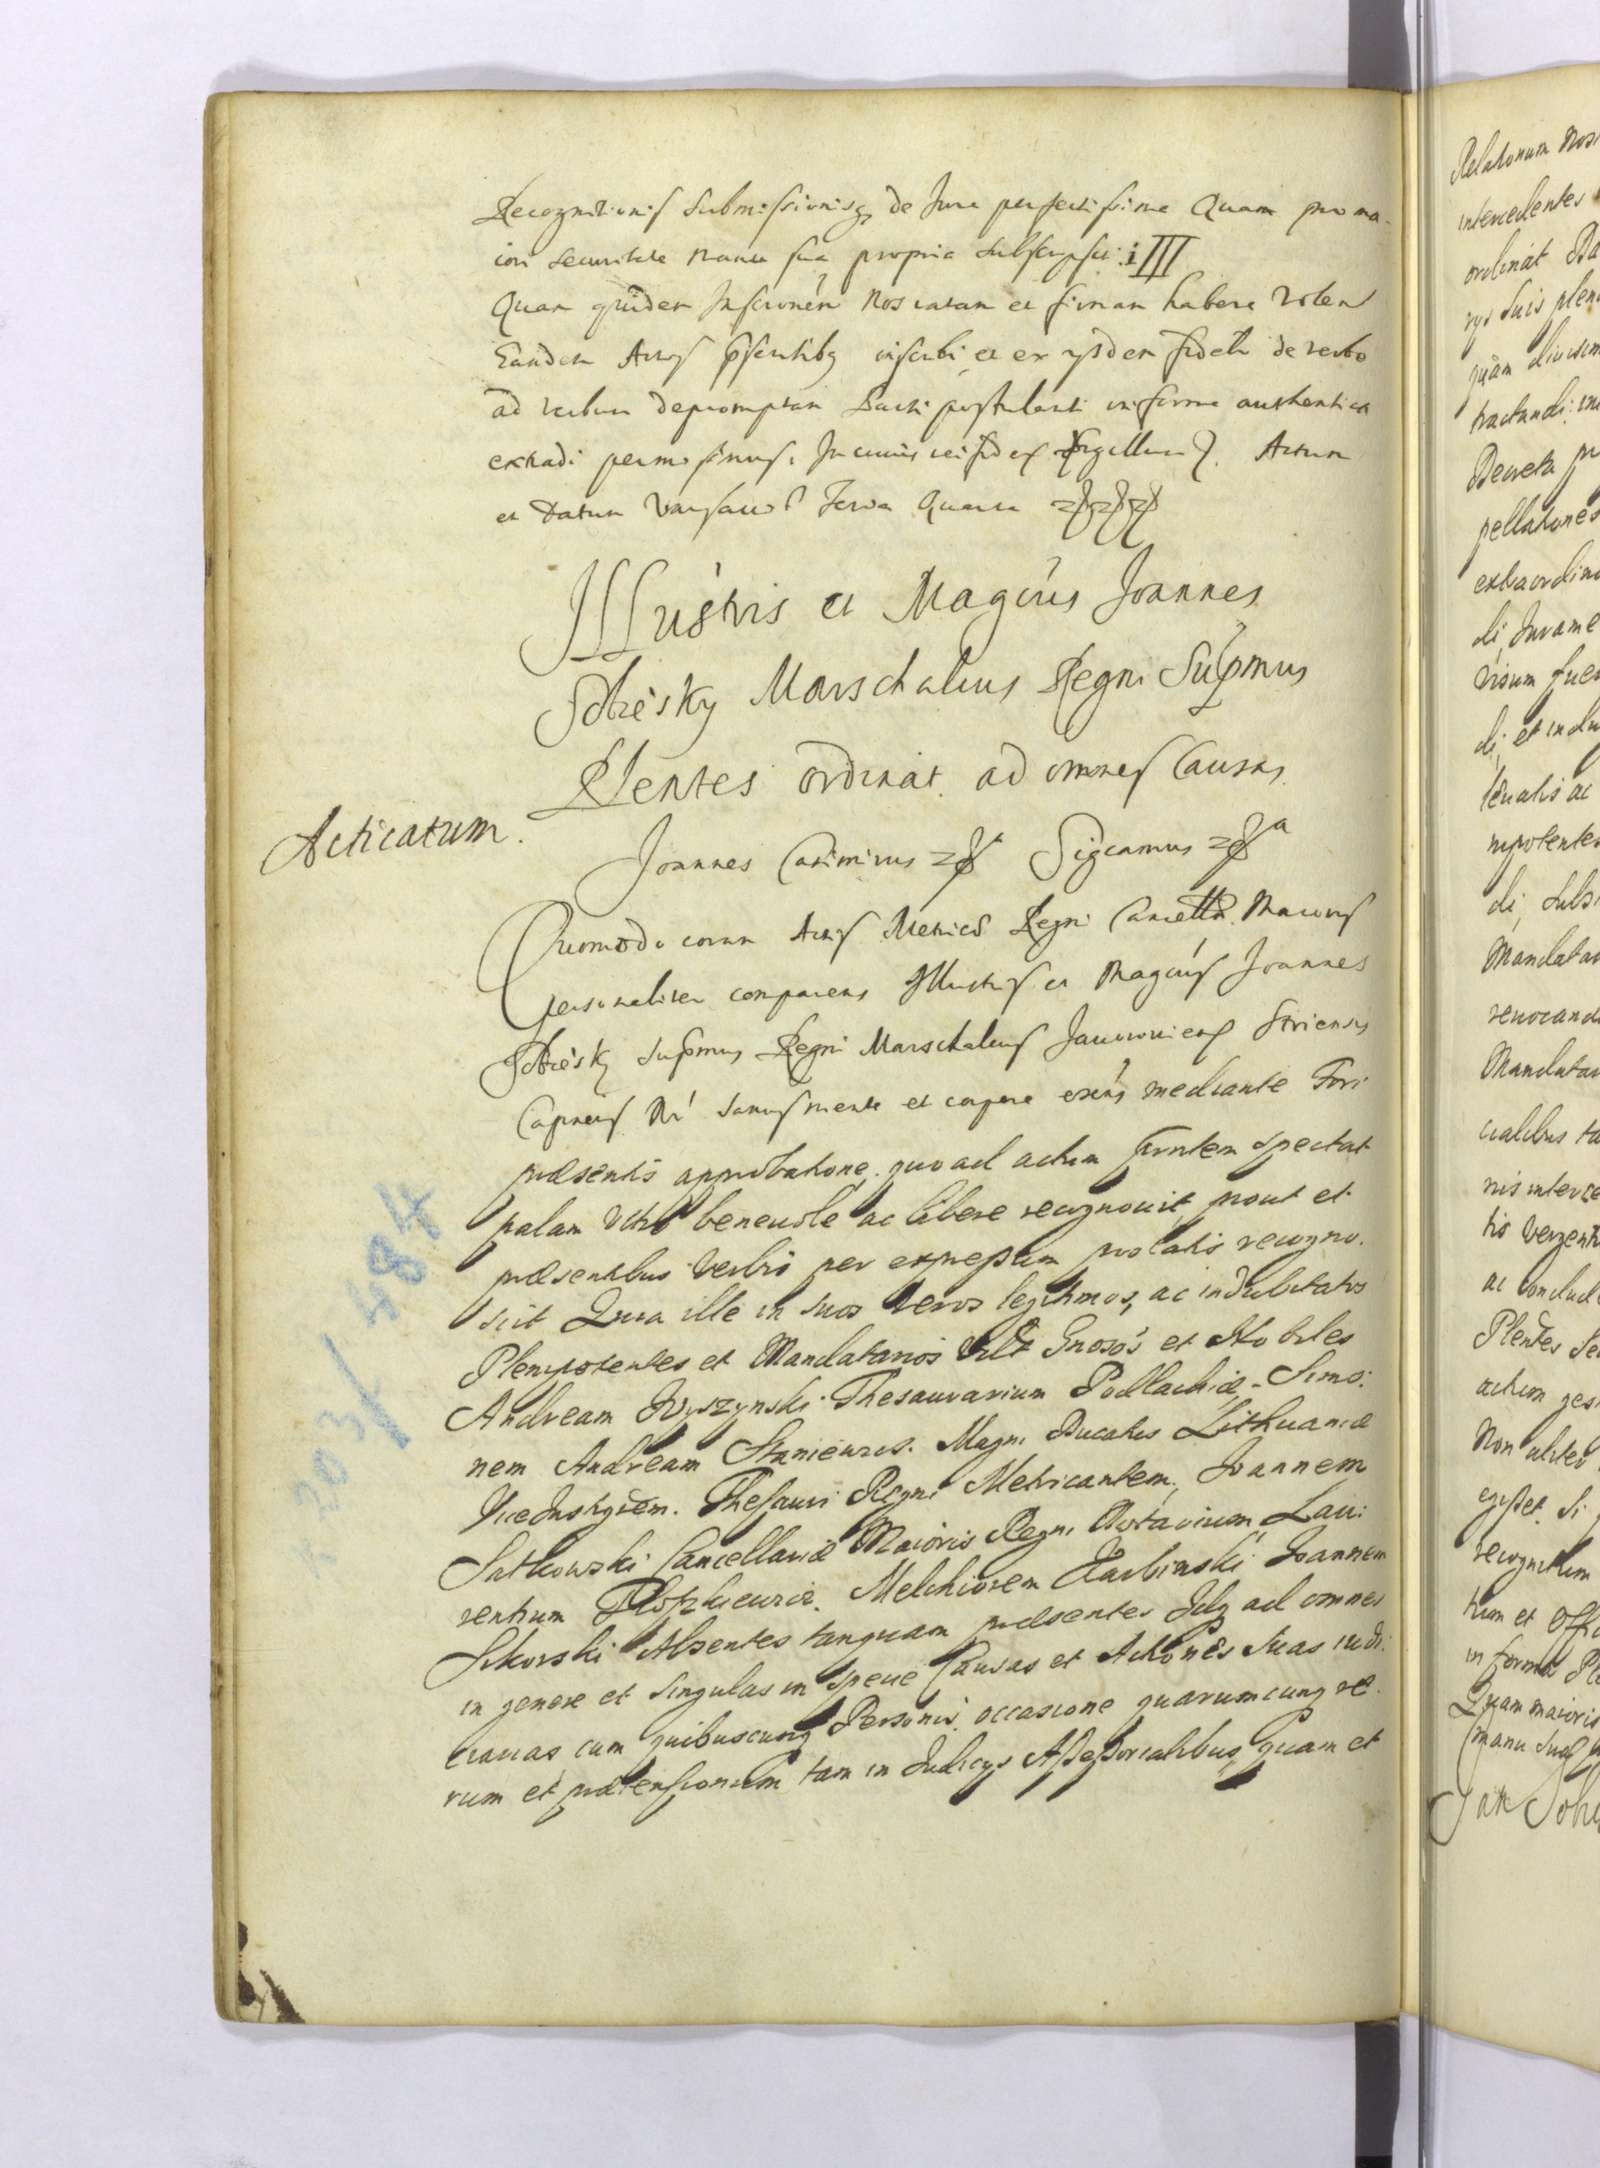 Recognitionis Submissionisq de Jure perfectissime Quam pro ma-
iori securitate manu sua propria subscripsit
Quam quidem Inscrionem Nos ratam et firmam habere volen
Eandem Actis pntibq inscribi, et ex ijsdem fideli de verbo
ad verbum depromptam Parti postulanti in forma authentica
extradi permisimus. In cuius rei fidem Sigillum. Actum
et Datum Varsaviae Feria Quarta
Illustris et Magcus Joannes
Sobiesky Marschalcus Regni Supmus
Plentes ordinat ad omnes Causas
Acticatum.
Joannes Casimirus Sigcamus
Quomodo coram Actis Metrices Regni Cancellae Maioris
personaliter comparens Illustris et Magcus Joannes
Sobiesky Supmus Regni Marschalcus Javoroviens Striensis
Capneus Nr sanus mente et corpore exens mediante Fori
praesentis approbatione, quo ad actum pntem spectat
palam ultro benevole ac libere recognovit prout et
praesentibus verbis per expressum prolatis recogno-
scit Quia ille in suos veros legitimos, ac indubitatos
Plenipotentes et Mandatarios Gnosos et Nobiles
Andream Wyszynski Thesaurarium Podlachiae, Simo:
nem Andream Magni Ducatus Lithuaniae
ViceInstigrem. Thesauri Regni Metricantem, Joannem
Satkowski Cancellariae Maioris Regni Notarium, Lau:
rentium Melchiorem Karbinski Joannem
Sikorski Absentes tanquam praesentes ad omnes
in genere et singulas in specie Causas et Actiones suas iudi:
ciarias cum quibuscunq Personis, occasione quarumcunq re-
rum et praetensionum tam in Iudicijs Assessorialibus, quam et
203/484
Relationum Nos
intercedentes
ordinat
rys suis plen
quam divisim
tractandi
Decreta
pellationes
extraordina
di, Jurame
visum fue
di, et indu
ac
nipotentes
di, subs
Mandatar
revocandi
Mandatar
cialibus ta
nis interce
tis vergent
ac conclud
Plentes
actum ges
Non aliter
egisset. Si
recognitum
tium et Offi
in forma
Quam maioris
manu sua
Jan Sobi